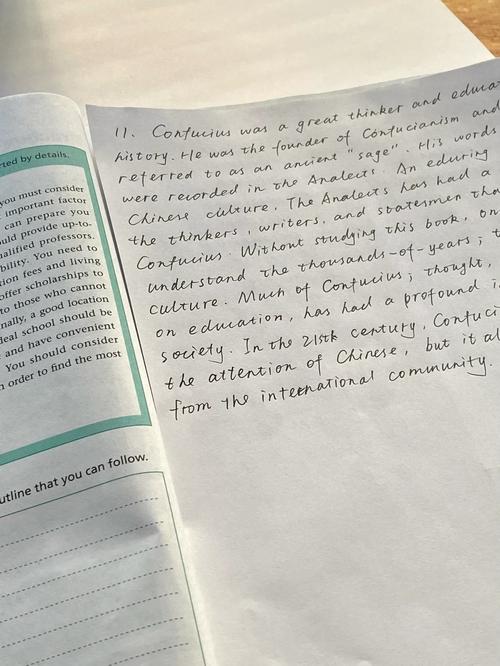 rted by details.
you must consider
important factor
can prepare you
uld provide up-to.
alified professors.
bility. You need to
tion fees and living
offer scholarships to
to those who cannot
nally, a good location
deal school should be
and have convenient
You should consider
n order to find the most
utline that you can follow.
11. Confucius was a great thinker and educa
history. He was the founder of Confucianism and
referred to as an ancient "sage". His words
were recorded in the Analects. An eduring
Chinese culture. The Analects has had a
the thinkers, writers, and statesmen tha
Confucius. Without studying this book, on
understand the thousands-of-years; t
culture. Much of Confucius; thought,
on education, has had a profound i
society. In the 21sth century, Confuci
the attention of Chinese, but it al
from the international community.